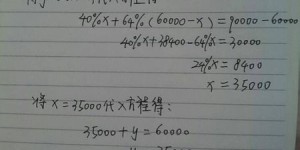 40%x+64%(60000-x)=90000-60000
40%x+38400-64%x=30000
24%x=8400
x=35000
将x=35000代入方程得：
35000+y=60000